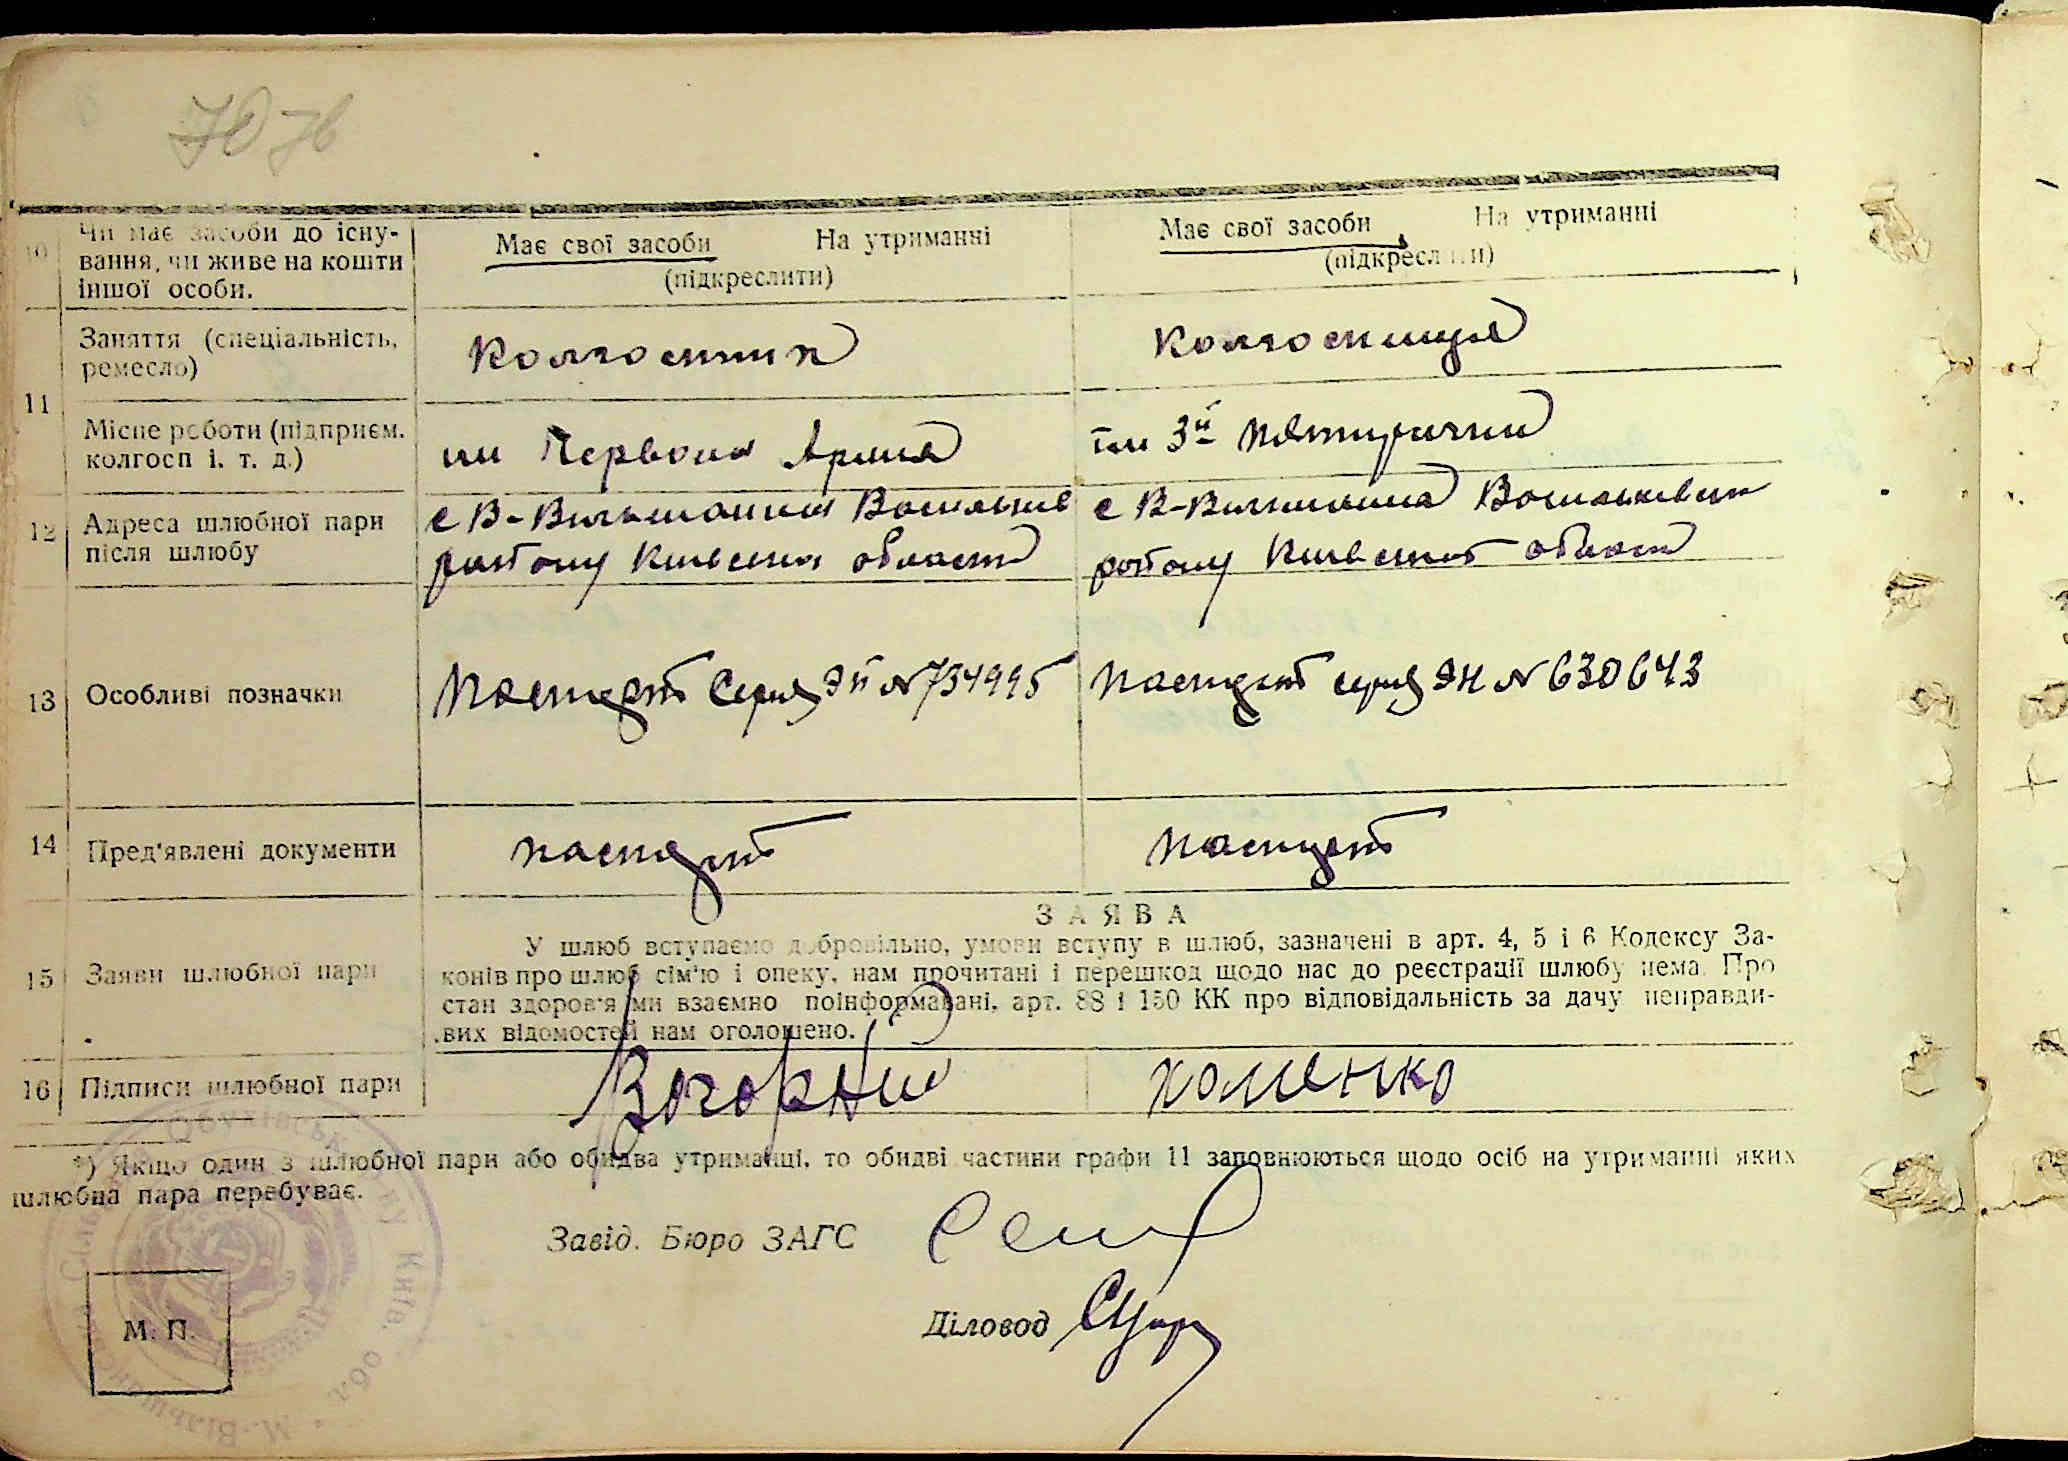 10 Чи має засоби до існу- Має свої засоби На утриманні Має свої засоби На утриманні
вання, чи живе на кошти (підкреслити) (підкреслити)
іншої особи.
Заняття (спеціальність, Колгоспник Колгоспниця
ремесло)
11
Місце роботи (підприєм. им Червона Армия ім 3й Пятирічки
колгосп і. т. д.)
12 Адреса шлюбної пари с В-Вильшанка Васильків с В-Вильшанка Васильківськ
після шлюбу району Київська области району Київської области
13 Особливі позначки Паспорт Серия ЭП № 734995 Паспорт серия ЭН № 630643
14 Пред'явлені документи паспорт паспорт
ЗАЯВА
У шлюб вступаємо добровільно, умови вступу в шлюб, зазначені в арт. 4, 5 і 6 Кодексу За-
15 Заяви шлюбної пари конів про шлюб сім'ю і опеку, нам прочитані і перешкод щодо нас до реєстрації шлюбу нема. Про
стан здоров'я ми взаємно поінформавані, арт. 88 і 150 КК про відповідальність за дачу неправди-
вих відомостей нам оголошено.
16 Підписи шлюбної пари Хоменко
*) Якщо один з шлюбної пари або обидва утриманці, то обидві частини графи 11 заповнюються щодо осіб на утриманні яких
шлюбна пара перебуває.
Завід. Бюро ЗАГС
Діловод
М. П.